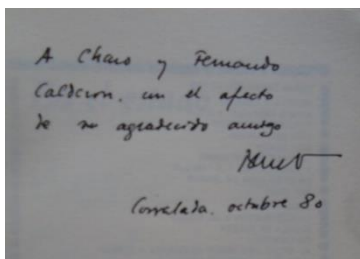 A Charo y Fernando
Calderon, con el afecto
de su agradecido amigo
Corralada, octubre 80